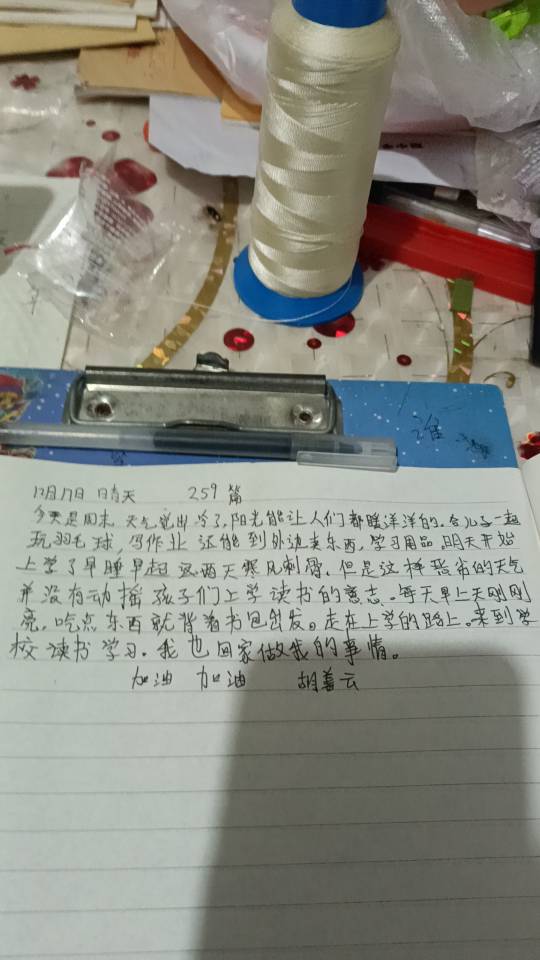 谁
12月17日 晴天 259篇
今天是周末 天气说出冷了,阳光能让人们都暖洋洋的.合儿子一起
玩羽毛球,写作业 还能到外边卖东西,学习用品,明天开始
上学了早睡早起 这两天寒风刺骨.但是这样恶劣的天气
并没有动摇孩子们上学读书的意志.每天早上天刚刚
亮,吃点东西就背着书包出发。走在上学的路上.来到学
校读书学习.我也回家做我的事情。
加油 加油 胡善云